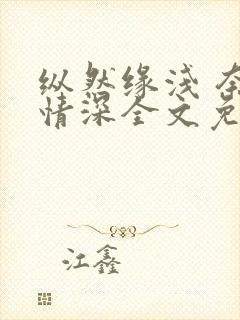 纵然缘浅 奈
情深全文免
江鑫